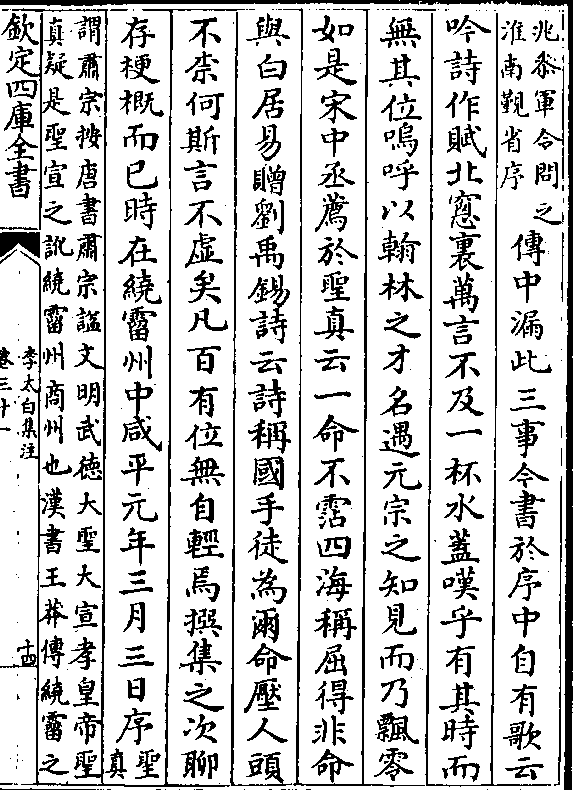 兆叅軍令問之
淮南覲省序
傳中漏此三事今書於序中白有歌云
吟詩作賦北窻裏萬言不及一杯水蓋嘆乎有其時而
無其位嗚呼以翰林之才名遇元宗之知見而乃飄零
如是宋中丞薦於聖真云一命不霑四海稱屈得非命
與白居易贈劉禹錫詩云詩稱國手徒為爾命壓人頭
不柰何斯言不虛矣凡百有位無自輕焉撰集之次聊
存梗概而已時在繞霤州中咸平元年三月三日序
聖
真
謂肅宗按唐書肅宗諡文明武德大聖大宣孝皇帝聖
真疑是聖宣之訛繞霤州商州也漢書王莽傳繞霤之
欽定四庫全書
李太白集注
卷三十一
十四